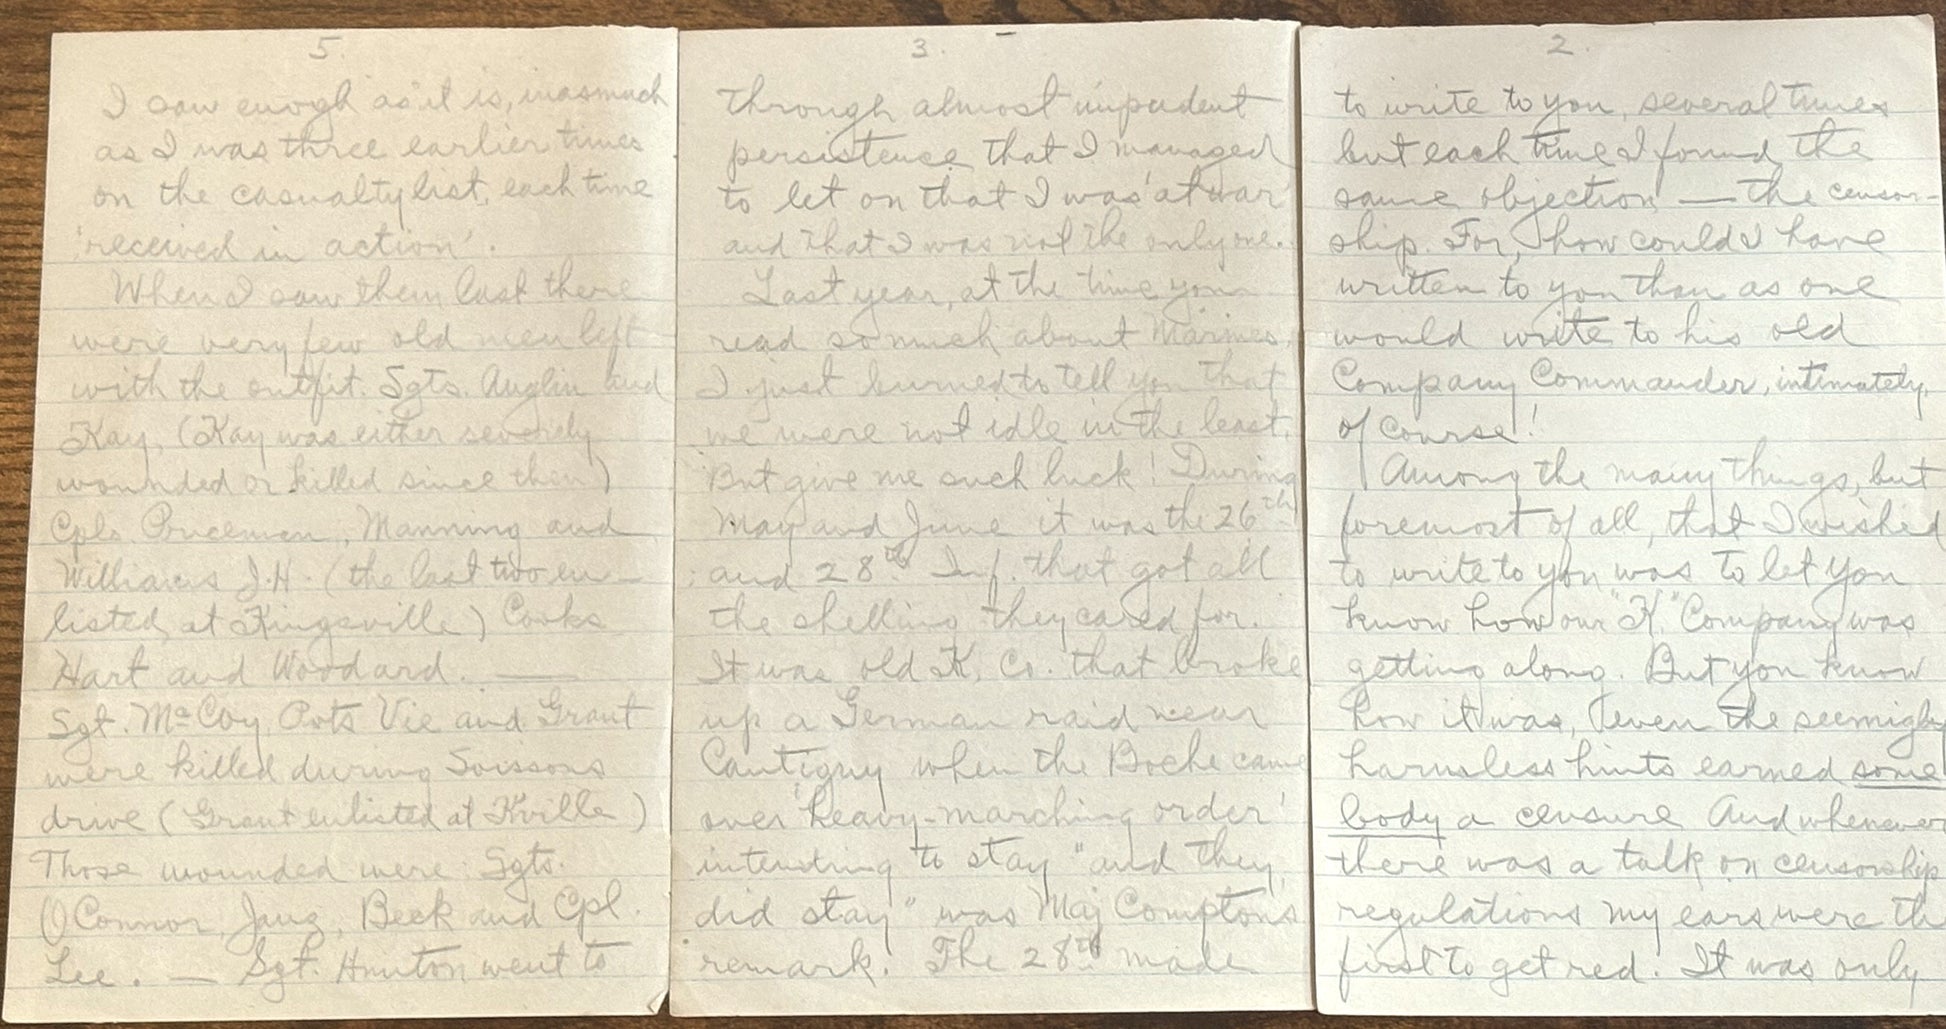 5.
I saw enogh as it is, inasmuch
as I was three earlier times
on the casualty list, each time
'received in action'.
When I saw them last there
were very few old men left
with the outfit. Sgts. Anglin and
Kay, (Kay was either severely
wounded or killed since then)
Cpls. Manning and
Williams J.H. (the last two en-
listed at Kingsville) Cooks
Hart and Woodard. —
Sgt. McCoy, Pvts Vie and Grant
were killed during Soissons
drive (Grant enlisted at Kville)
Those wounded were: Sgts.
O'Connor, Beck and Cpl.
Lee. — Sgt. Hinton went to
3.
through almost impudent
persistence that I managed
to let on that I was 'at war'
and that I was not the only one.
Last year, at the time you
read so much about Marines,
I just burned to tell you that
we were not idle in the least.
But give me such luck! During
May and June it was the 26th
and 28th Inf. that got all
the shelling they cared for.
It was old K, Co. that broke
up a German raid near
Cantigny when the Boche came
over 'heavy-marching order'
intending to stay "and they
did stay" was Maj Comptons
remark! The 28th made
2.
to write to you, several times
but each time I found the
same objection — the censor-
ship. For, how could I have
written to you than as one
would write to his old
Company Commander, intimately,
of course!
Among the many things, but
foremost of all, that I wished
to write to you was to let you
know how our "K" Company was
getting along. But you know
how it was, even the seemigly
harmless hints earned some
body a censure And whenever
there was a talk on censorship
regulations my ears were the
first to get red! It was only